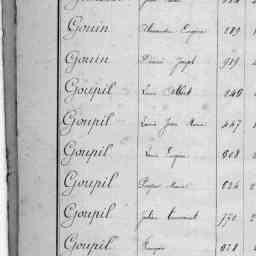 Gouin Alexandre Eugène 289
Gouin Désiré Joseph 919
Goupil Louis Albert 240
Goupil Louis Jean Marie 447
Goupil Louis Eugène 808
Goupil Prosper Marie 824
Goupil Julien 950
Goupil François 878